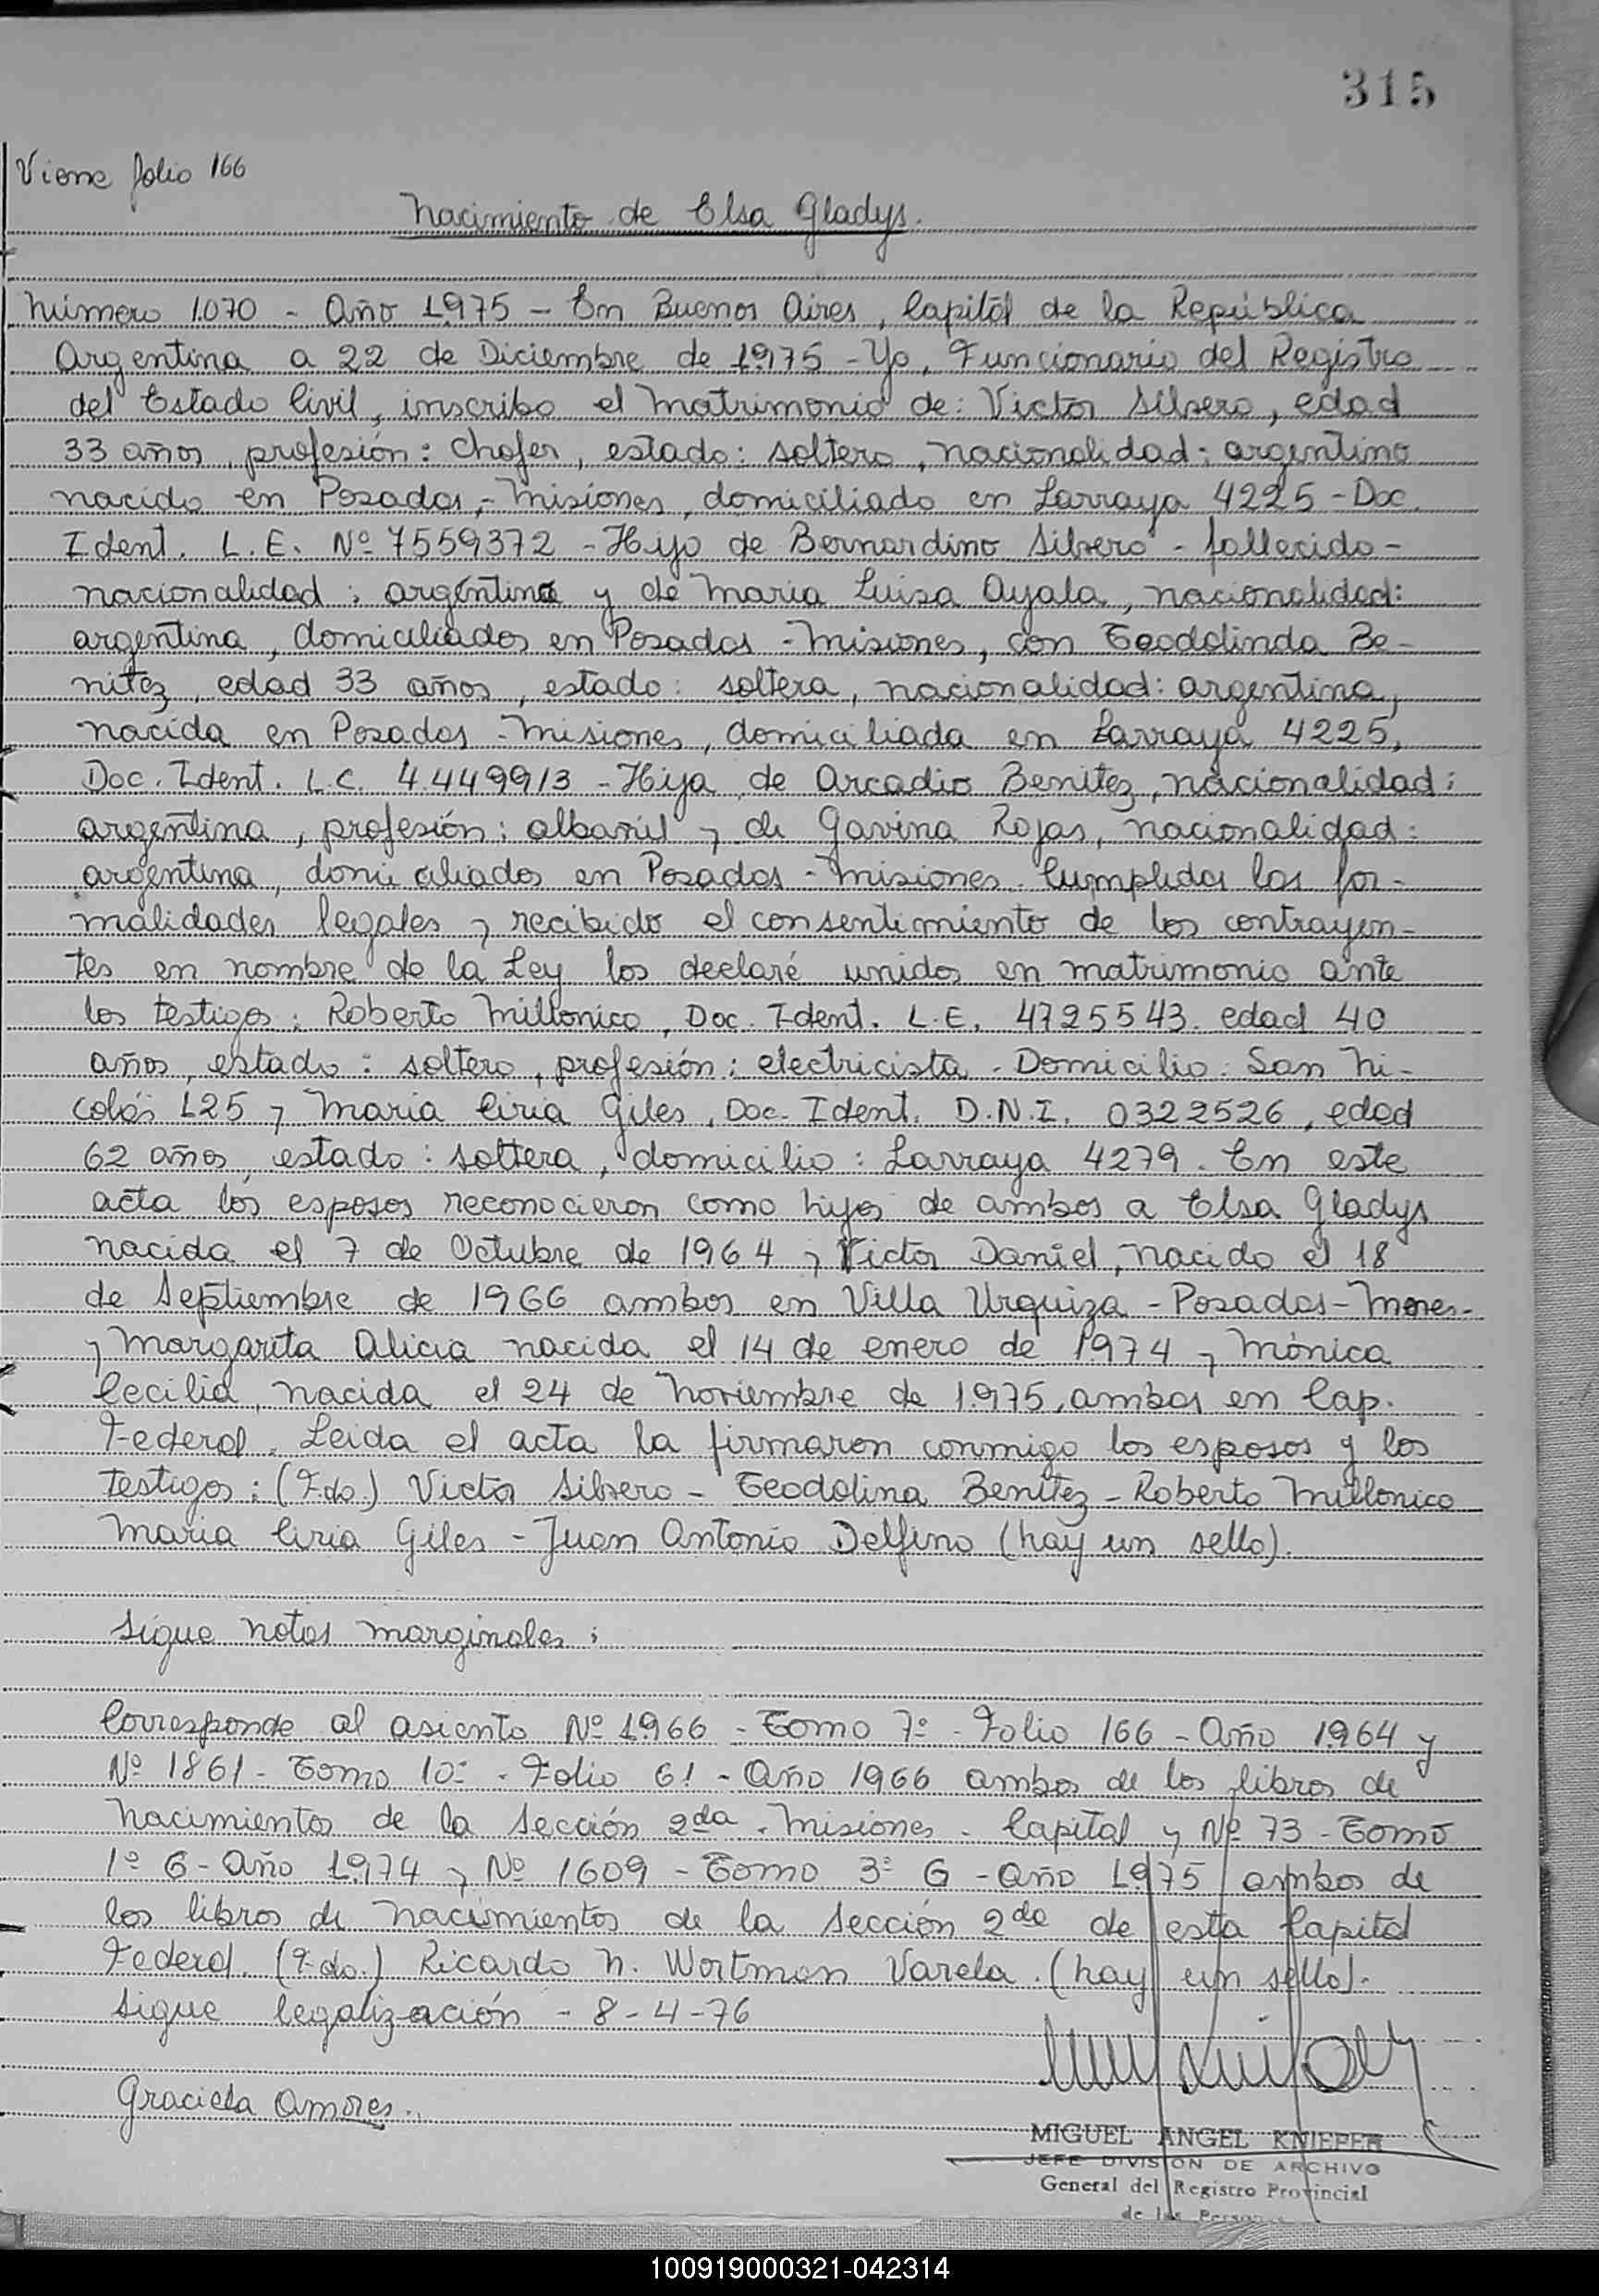 315
Viene folio 166
Nacimiento de Elsa Gladys.
Número 1.070 - Año 1.975 - En Buenos Aires, Capital de la República
Argentina a 22 de Diciembre de 1.975 - Yo, Funcionario del Registro
del Estado Civil, inscribo el Matrimonio de: Victor Silvero, edad
33 años, profesión: Chofer, estado: soltero, nacionalidad: argentino
nacido en Posadas - Misiones, domiciliado en Larraya 4225 - Doc.
Ident. L.E. Nº 7559372 - Hijo de Bernardino Silvero - fallecido -
nacionalidad: argentina y de Maria Luisa Ayala, nacionalidad:
argentina, domiciliados en Posadas - Misiones, con Teodolinda Be-
nitez, edad 33 años, estado: soltera, nacionalidad: argentina,
nacida en Posadas - Misiones, domiciliada en Larraya 4225,
Doc. Ident. L.C. 4.449913 - Hija de Arcadio Benitez, nacionalidad:
argentina, profesión: albañil y de Gavina Rojas, nacionalidad:
argentina, domiciliados en Posadas - Misiones. Cumplidas las for-
malidades legales y recibido el consentimiento de los contrayen-
tes en nombre de la Ley los declaré unidos en matrimonio ante
los testigos: Roberto Millonico, Doc. Ident. L.E. 4725543. edad 40
años, estado: soltero, profesión: electricista - Domicilio: San Ni-
colás 125 y Maria Ciria Giles, Doc. Ident. D.N.I. 0322526, edad
62 años, estado: soltera, domicilio: Larraya 4279. En este
acta los esposos reconocieron como hijos de ambos a Elsa Gladys
nacida el 7 de Octubre de 1964 y Victor Daniel, nacido el 18
de Septiembre de 1966 ambos en Villa Urquiza - Posadas - Mnes -
y Margarita Alicia nacida el 14 de enero de 1974 y Mónica
Cecilia, nacida el 24 de Noviembre de 1.975, ambas en Cap.
Federal. Leida el acta la firmaron conmigo los esposos y los
testigos: (F.do.) Victor Silvero - Teodolina Benitez - Roberto Millonico
Maria Ciria Giles - Juan Antonio Delfino (hay un sello).
Sigue notas marginales:
Corresponde al asiento Nº 1.966 - Tomo 7º - Folio 166 - Año 1.964 y
Nº 1861 - Tomo 10º - Folio 61 - Año 1966 ambos de los libros de
Nacimientos de la Sección 2da. Misiones - Capital y Nº 73 - Tomo
1º G - Año 1.974 y Nº 1609 - Tomo 3º G - Año 1975 ambos de
los libros de nacimientos de la Sección 2da de esta Capital
Federal. (F.do.) Ricardo N. Wortman Varela. (hay un sello).
Sigue legalización - 8-4-76
Graciela Amores.
MIGUEL ANGEL KNIEPER
JEFE DIVISION DE ARCHIVO
General del Registro Provincial
de las
100919000321-042314